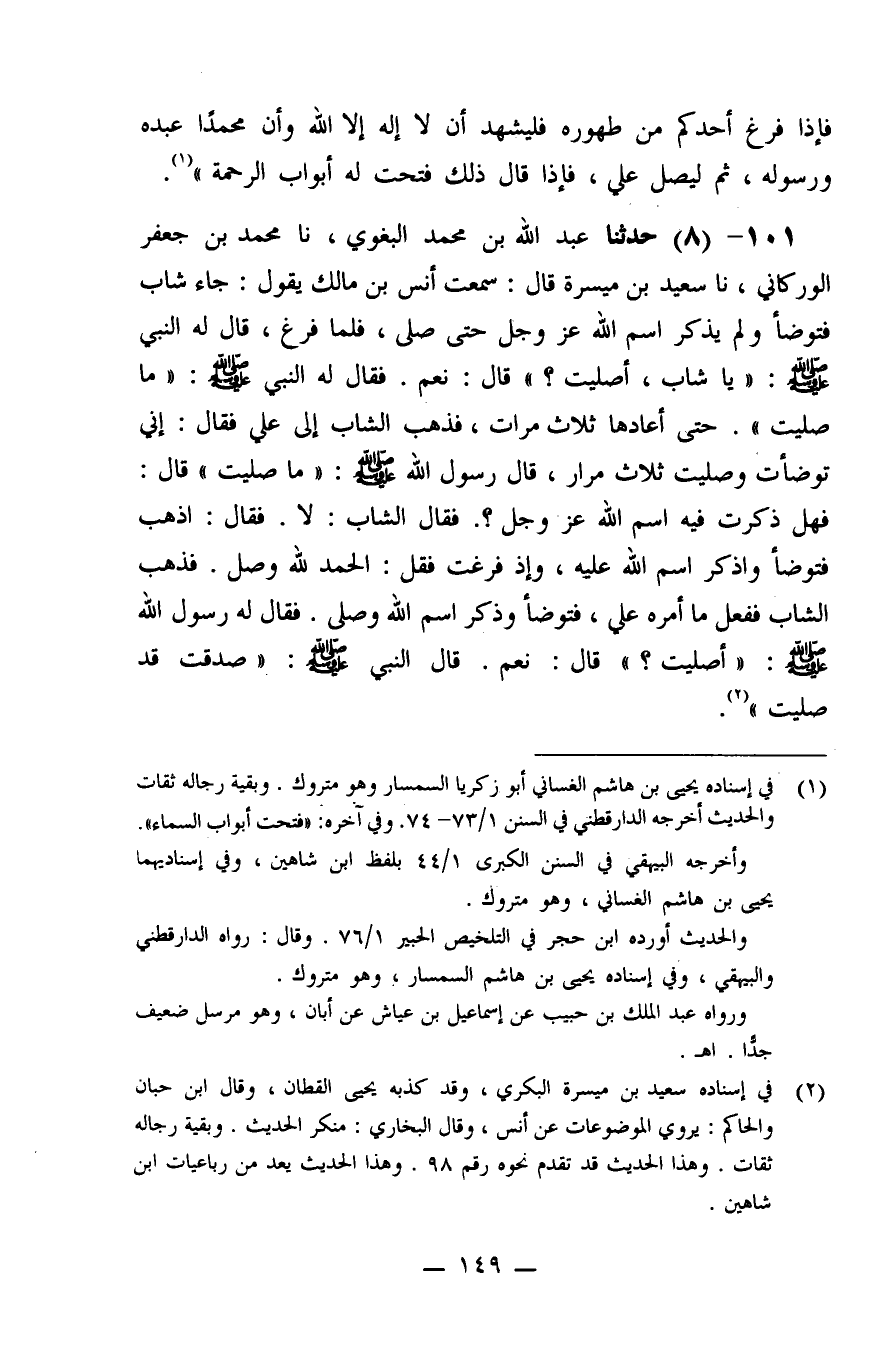 فإذا فرغ أحدكم من طهوره فليشهد أن لا إله إلا الله وأن محمدًا عبده
ورسوله ، ثم ليصل علي ، فإذا قال ذلك فتحت له أبواب الرحمة »(١).
١٠١- (٨) حدثنا عبد الله بن محمد البغوي ، نا محمد بن جعفر
الوركاني ، نا سعيد بن ميسرة قال : سمعت أنس بن مالك يقول : جاء شاب
فتوضأ ولم يذكر اسم الله عز وجل حتى صلى ، فلما فرغ ، قال له النبي
ﷺ : « يا شاب ، أصليت ؟ » قال : نعم . فقال له النبي ﷺ : « ما
صليت » . حتى أعادها ثلاث مرات ، فذهب الشاب إلى علي فقال : إني
توضأت وصليت ثلاث مرار ، قال رسول الله ﷺ : « ما صليت » قال :
فهل ذكرت فيه اسم الله عز وجل ؟. فقال الشاب : لا . فقال : اذهب
فتوضأ واذكر اسم الله عليه ، وإذ فرغت فقل : الحمد لله وصل . فذهب
الشاب ففعل ما أمره علي ، فتوضأ وذكر اسم الله وصلى . فقال له رسول الله
ﷺ : « أصليت ؟ » قال : نعم . قال النبي ﷺ : « صدقت قد
صليت »(٢).
(١) في إسناده يحيى بن هاشم الغساني أبو زكريا السمسار وهو متروك . وبقية رجاله ثقات
والحديث أخرجه الدارقطني في السنن ٧٣/١– ٧٤. وفي آخره: «فتحت أبواب السماء».
وأخرجه البيهقي في السنن الكبرى ٤٤/١ بلفظ ابن شاهين ، وفي إسناديهما
يحيى بن هاشم الغساني ، وهو متروك .
والحديث أورده ابن حجر في التلخيص الحبير ٧٦/١ . وقال : رواه الدارقطني
والبيهقي ، وفي إسناده يحيى بن هاشم السمسار ، وهو متروك .
ورواه عبد الملك بن حبيب عن إسماعيل بن عياش عن أبان ، وهو مرسل ضعيف
جدًّا . اهـ .
(٢) في إسناده سعيد بن ميسرة البكري ، وقد كذبه يحيى القطان ، وقال ابن حبان
والحاكم : يروي الموضوعات عن أنس ، وقال البخاري : منكر الحديث . وبقية رجاله
ثقات . وهذا الحديث قد تقدم نحوه رقم ٩٨ . وهذا الحديث يعد من رباعيات ابن
شاهين .
— ١٤٩ —